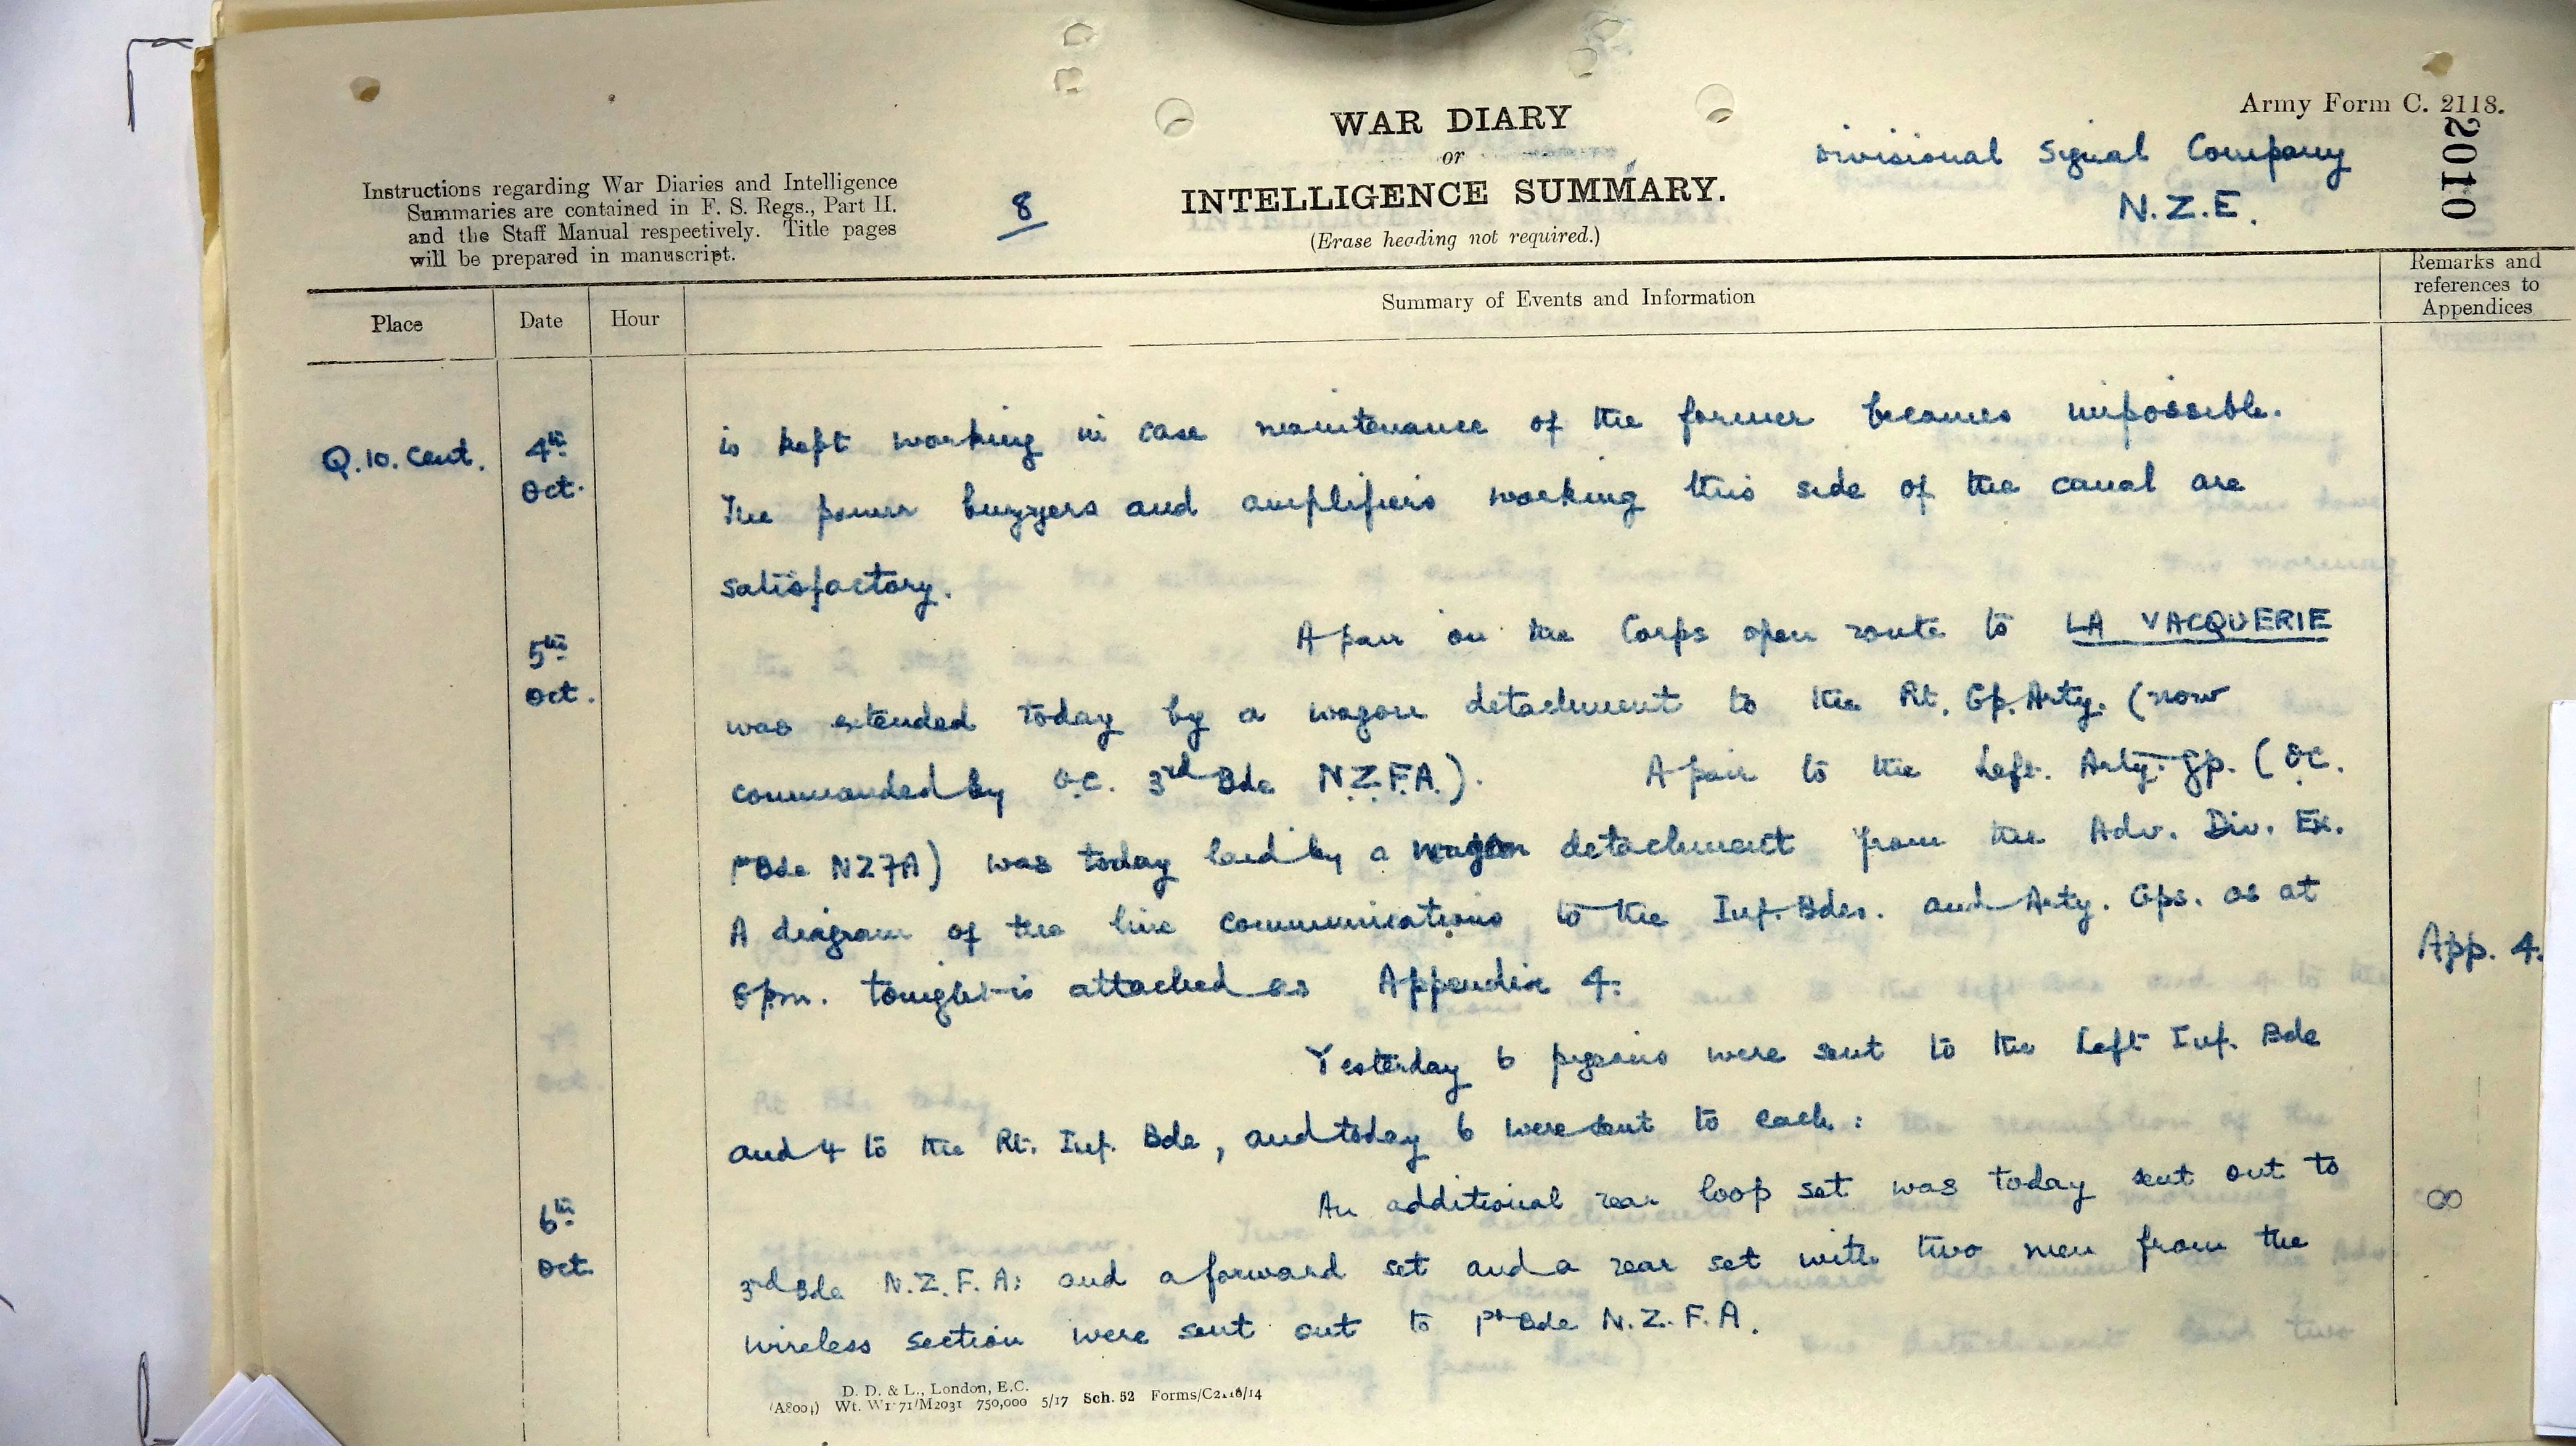 Army Form C. 2118.
2010
WAR DIARY
or
INTELLIGENCE SUMMARY.
(Erase heading not required.)
Instructions regarding War Diaries and Intelligence
Summaries are contained in F. S. Regs., Part II.
and the Staff Manual respectively. Title pages
will be prepared in manuscript.
8
Divisional Signal Company
N.Z.E.
Place Date Hour Summary of Events and Information
Remarks and
references to
Appendices
Q.10. Cent. 4th Oct. is kept working in case maintenance of the former becomes impossible.
The power buzzers and amplifiers working this side of the canal are
satisfactory.
5th Oct. A pair on the Corps open route to LA VACQUERIE
was extended today by a wagon detachment to the Rt. Gp. Arty. (now
commanded by O.C. 3rd Bde N.Z.F.A.). A pair to the Left. Arty. Gp. (O.C.
1st Bde NZFA) was today laid by a wagon detachment from the Adv. Div. Ex.
A diagram of the line communications to the Inf. Bdes. and Arty. Gps. as at
8pm. tonight is attached as Appendix 4. App. 4.
Yesterday 6 pigeons were sent to the Left Inf. Bde
and 4 to the Rt. Inf. Bde, and today 6 were sent to each.
6th Oct. An additional rear loop set was today sent out to
3rd Bde N.Z.F.A: and a forward set and a rear set with two men from the
wireless section were sent out to 1st Bde N.Z.F.A.
8
D. D. & L., London, E.C.
(A8004) Wt. W1771/M2031 750,000 5/17 Sch. 52 Forms/C2118/14